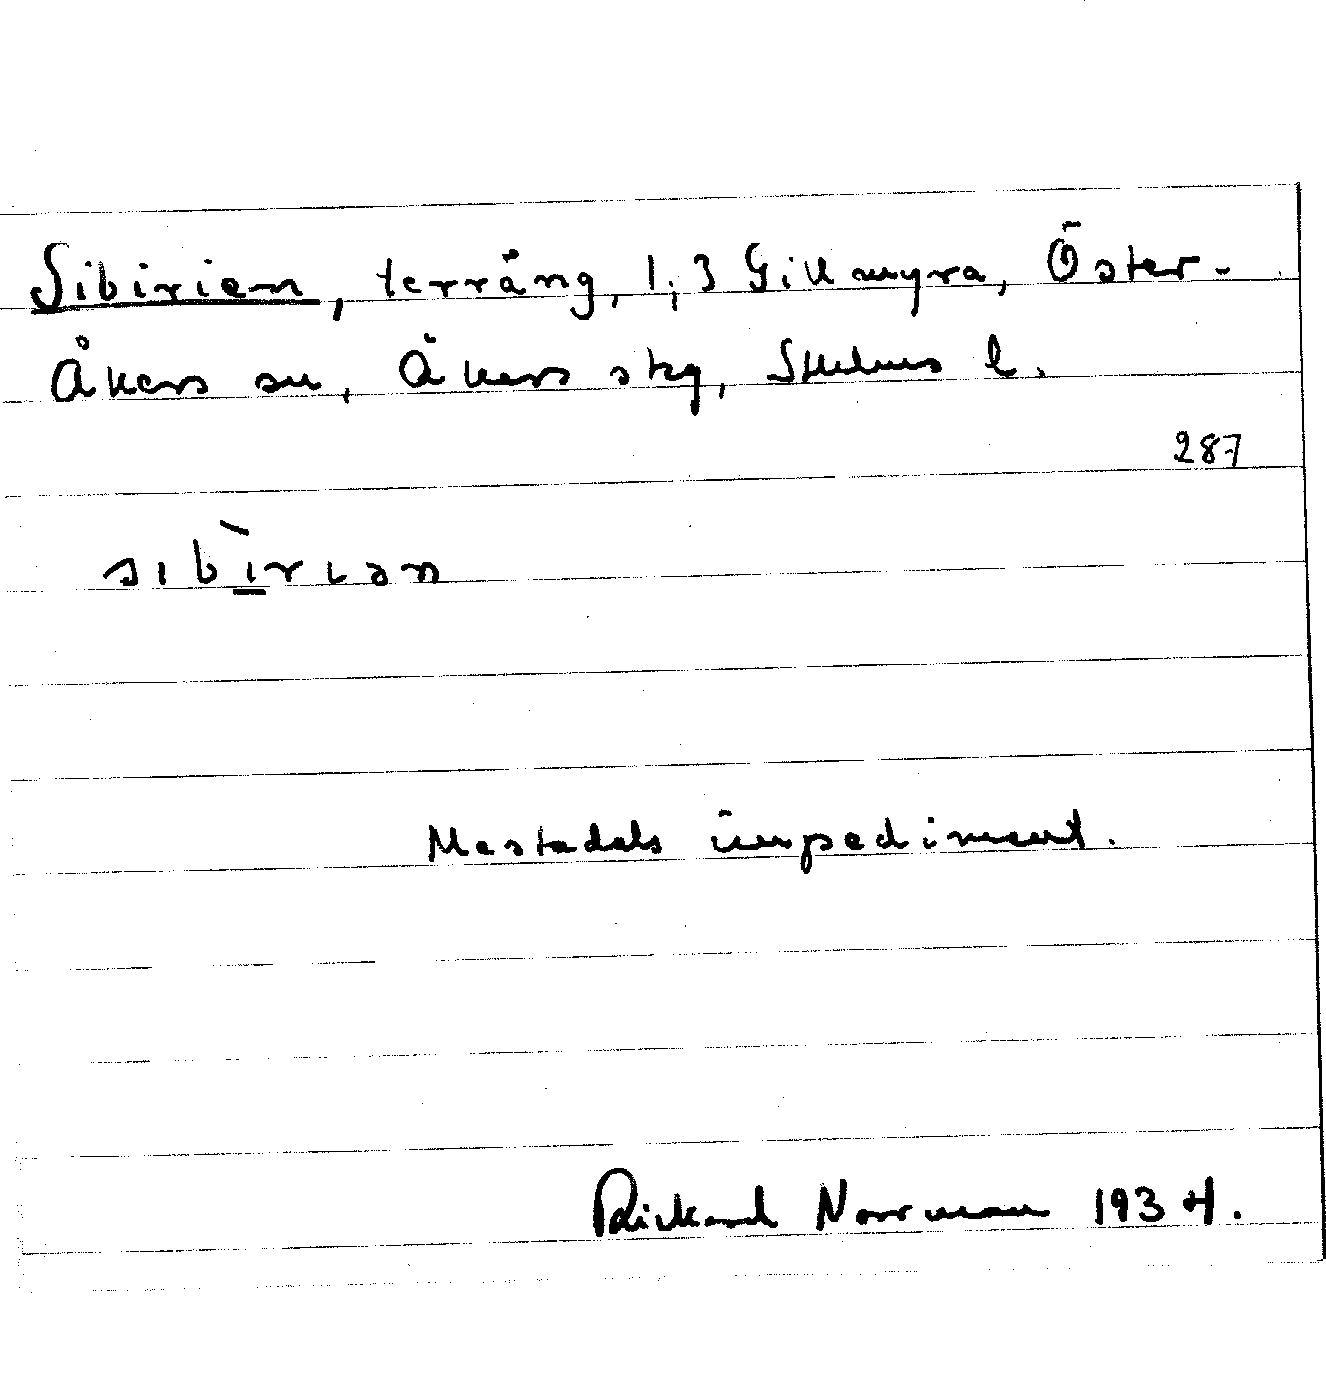 Sibirien, terräng, 1:3 Gillmyra, Öster-
Åkers sn, Åkers skg, Sthlms l.
287
sıbìrıan
Mestadels impediment.
Rickard Norrman 1934.